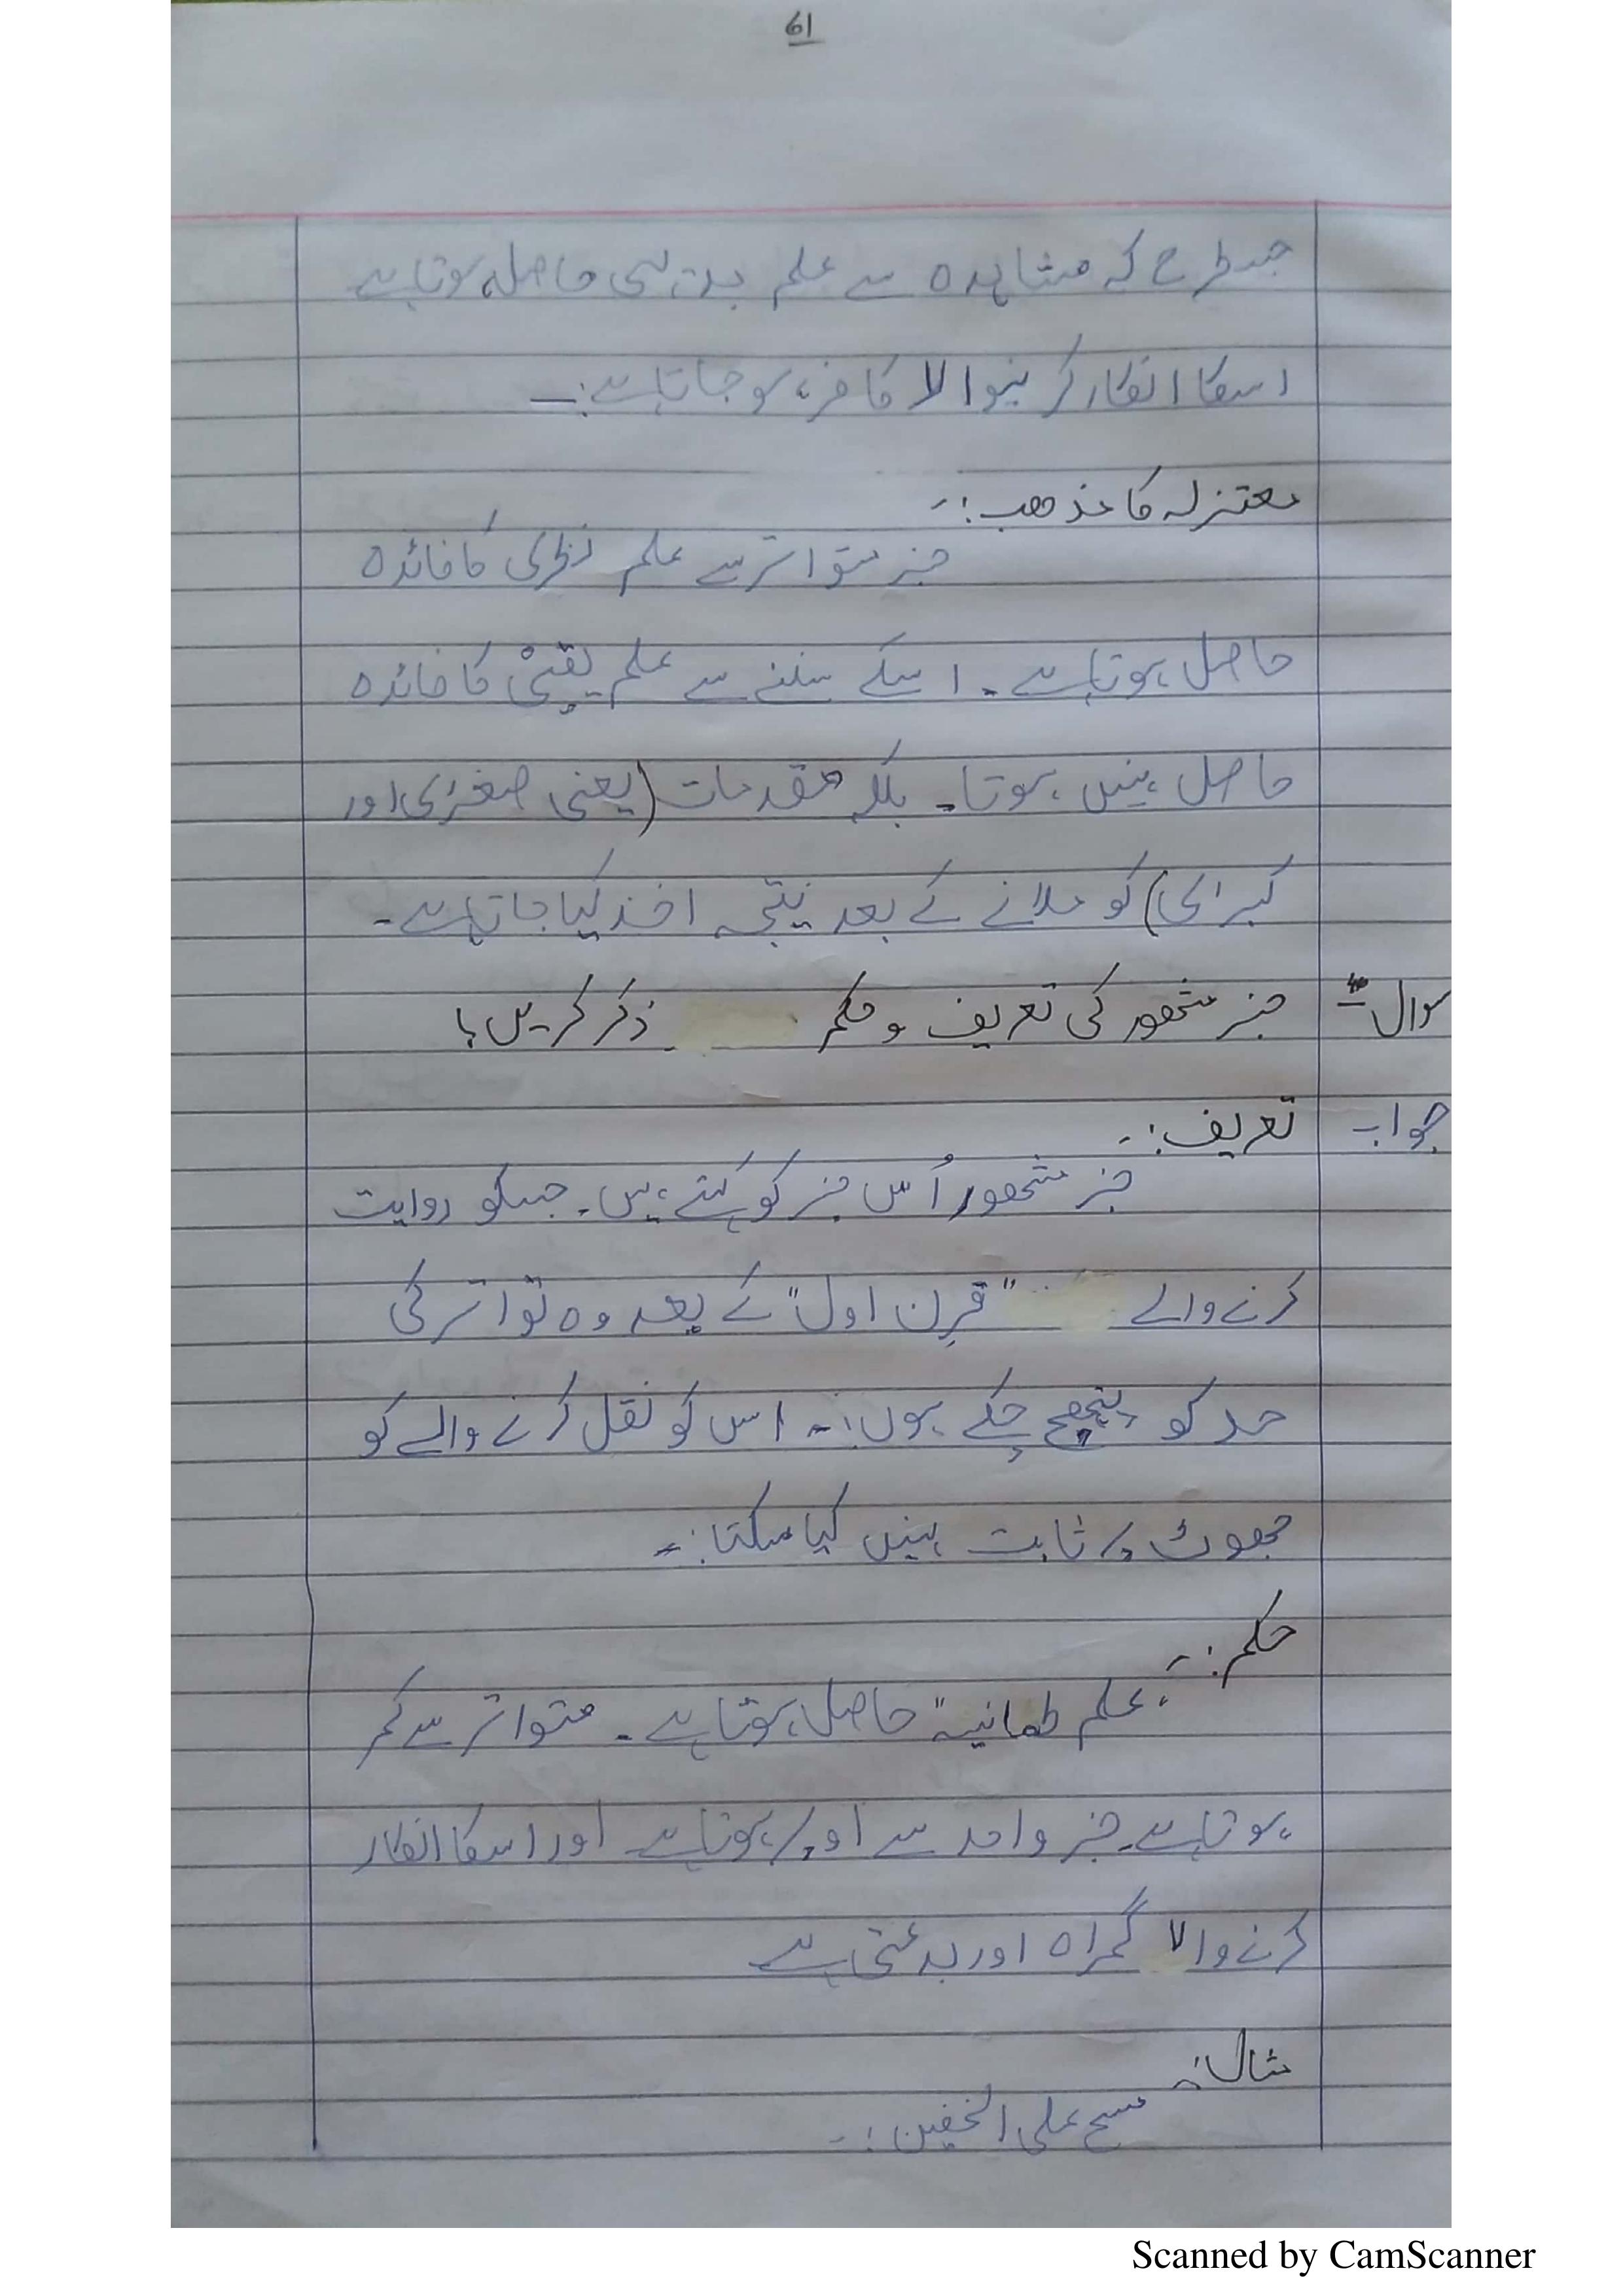 61
جسطرح کہ مشاہدہ سے علم بدیہی حاصل ہوتا ہے
اسکا انکار کرنیوالا کافر ہوجاتا ہے:۔
معتزلہ کا مذھب:۔
خبر متواتر سے علم نظری کا فائدہ
حاصل ہوتا ہے۔ اسکے سننے سے علم یقینی کا فائدہ
حاصل نہیں ہوتا۔ بلکہ مقدمات (یعنی صغرٰی اور
کبرٰی) کو ملانے کے بعد نتیجہ اخذ کیا جاتا ہے۔
سوال خبر مشھور کی تعریف و حکم ذکر کریں؟
جواب تعریف:۔
خبر مشھور اُس خبر کو کہتے ہیں۔ جسکو روایت
کرنے والے "قرن اول" کے بعد وہ تواتر کی
حد کو پہنچ چکے ہوں:۔ اس کو نقل کرنے والے کو
جھوٹ پر ثابت نہیں کیا سکتا:۔
حکم:۔
"علم طمانیہ" حاصل ہوتا ہے۔ متواتر سے کم
ہوتا ہے خبر واحد سے اوپر ہوتا ہے اور اسکا انکار
کرنے والا گمراہ اور بدعتی ہے
مثال:۔
مسح علی الخفین:۔
Scanned by CamScanner